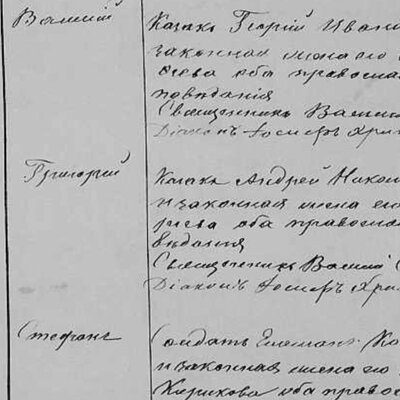 Василій
Казакъ Георгій Иван
законная жена его
ѣева оба православ
повѣданія
Священникъ Васил
Діаконъ Іосифъ Хри
Григорій
Казакъ Андрей Никол
и законная жена ег
ѣева оба православ
вѣданія
Священникъ Василій
Діаконъ Іосифъ Хри
Стефанъ
Солдатъ
и законная жена его
Кирикова оба правос